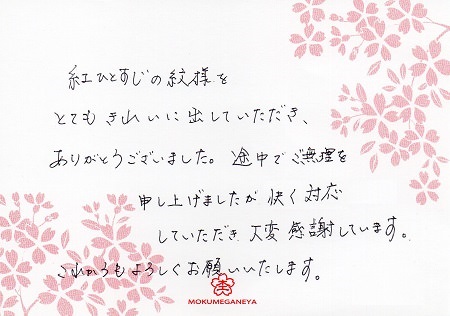 紅ひとすじの紋様を
とても きれいに出していただき、
ありがとうございました。途中でご無理を
申し上げましたが 快く対応
していただき 大変 感謝しています。
これからもよろしくお願いいたします。
MOKUMEGANEYA